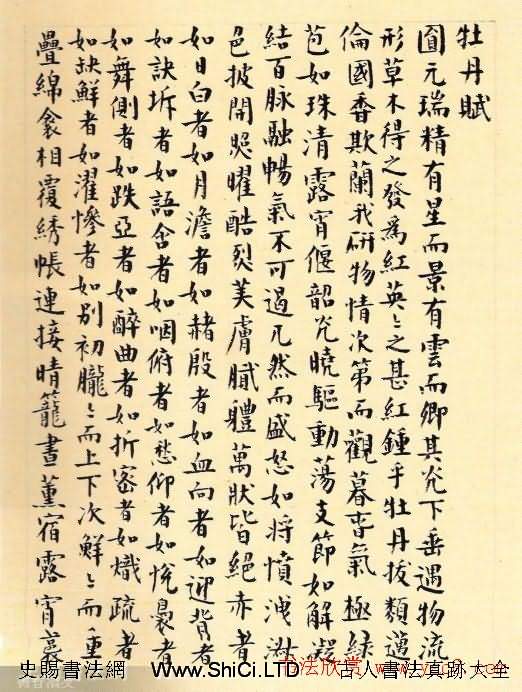 牡丹賦
圓元瑞精有星而景有雲而卿其光下垂遇物流
形草木得之發為紅英〻之甚紅鍾乎牡丹拔類邁
倫國香欺蘭我研物情次第而觀暮春氣極綠
苞如珠清露宵偃韶光曉驅動蕩支節如解凝
結百脉融暢氣不可遏兀然而盛怒如將憤洩淑
色披開照曜酷烈美膚膩體萬狀皆絕赤者
如日白者如月澹者如赭殷者如血向者如迎背者
如訣坼者如語含者如咽俯者如愁仰者如悅裊者
如舞側者如跌亞者如醉曲者如折密者如熾疏者
如缺鮮者如濯慘者如別初朧〻而上下次鮮〻而重
疊綿衾相覆綉帳連接晴籠晝薰宿露宵裛
书法欣赏 www.yac8.com
史賜書法網 www.ShiCi.LTD 古人書法真跡大全